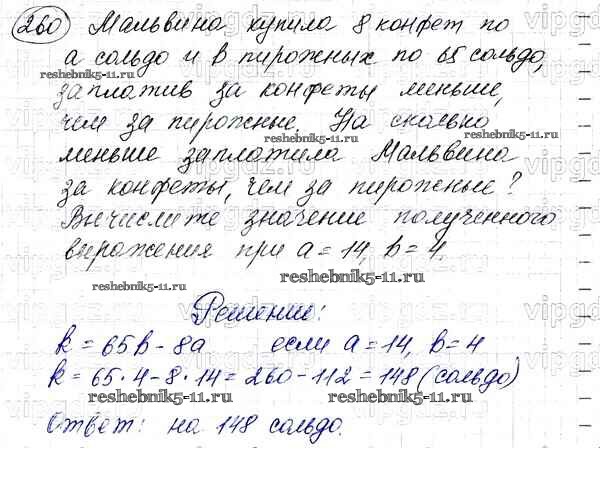 260 Мальвина купила 8 конфет по
а сольдо и в пирожных по 65 сольдо,
reshebnik5-11.ru
заплатив за конфеты меньше,
чем за пирожные. На сколько
reshebnik5-11.ru
меньше заплатила Мальвина
за конфеты, чем за пирожные?
Вычислите значение полученного
выражения при a = 14, b = 4.
reshebnik5-11.ru
reshebnik5-11.ru
Решение:
k = 65b - 8a если a = 14, b = 4
k = 65 · 4 - 8 · 14 = 260 - 112 = 148 (сольдо)
reshebnik5-11.ru reshebnik5-11.ru
Ответ: на 148 сольдо.